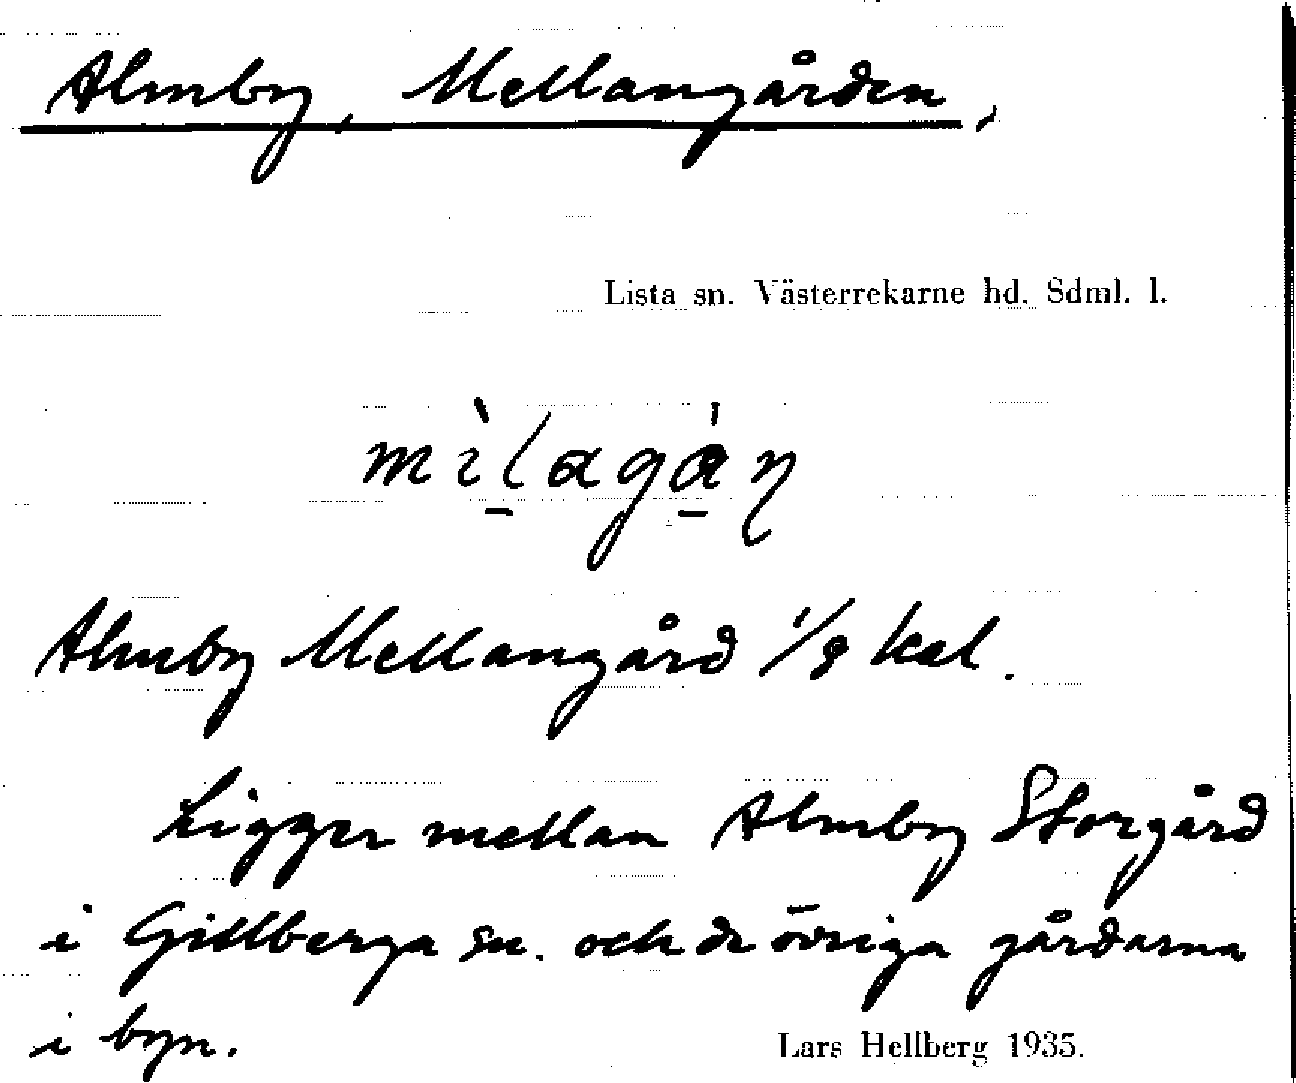 Almby, Mellangården,
Lista sn. Västerrekarne hd. Sdml. l.
Almby Mellangård 1/8 kal.
Ligger mellan Almby Storgård
i Gillberga sn. och de övriga gårdarna
i byn.
Lars Hellberg 1935.